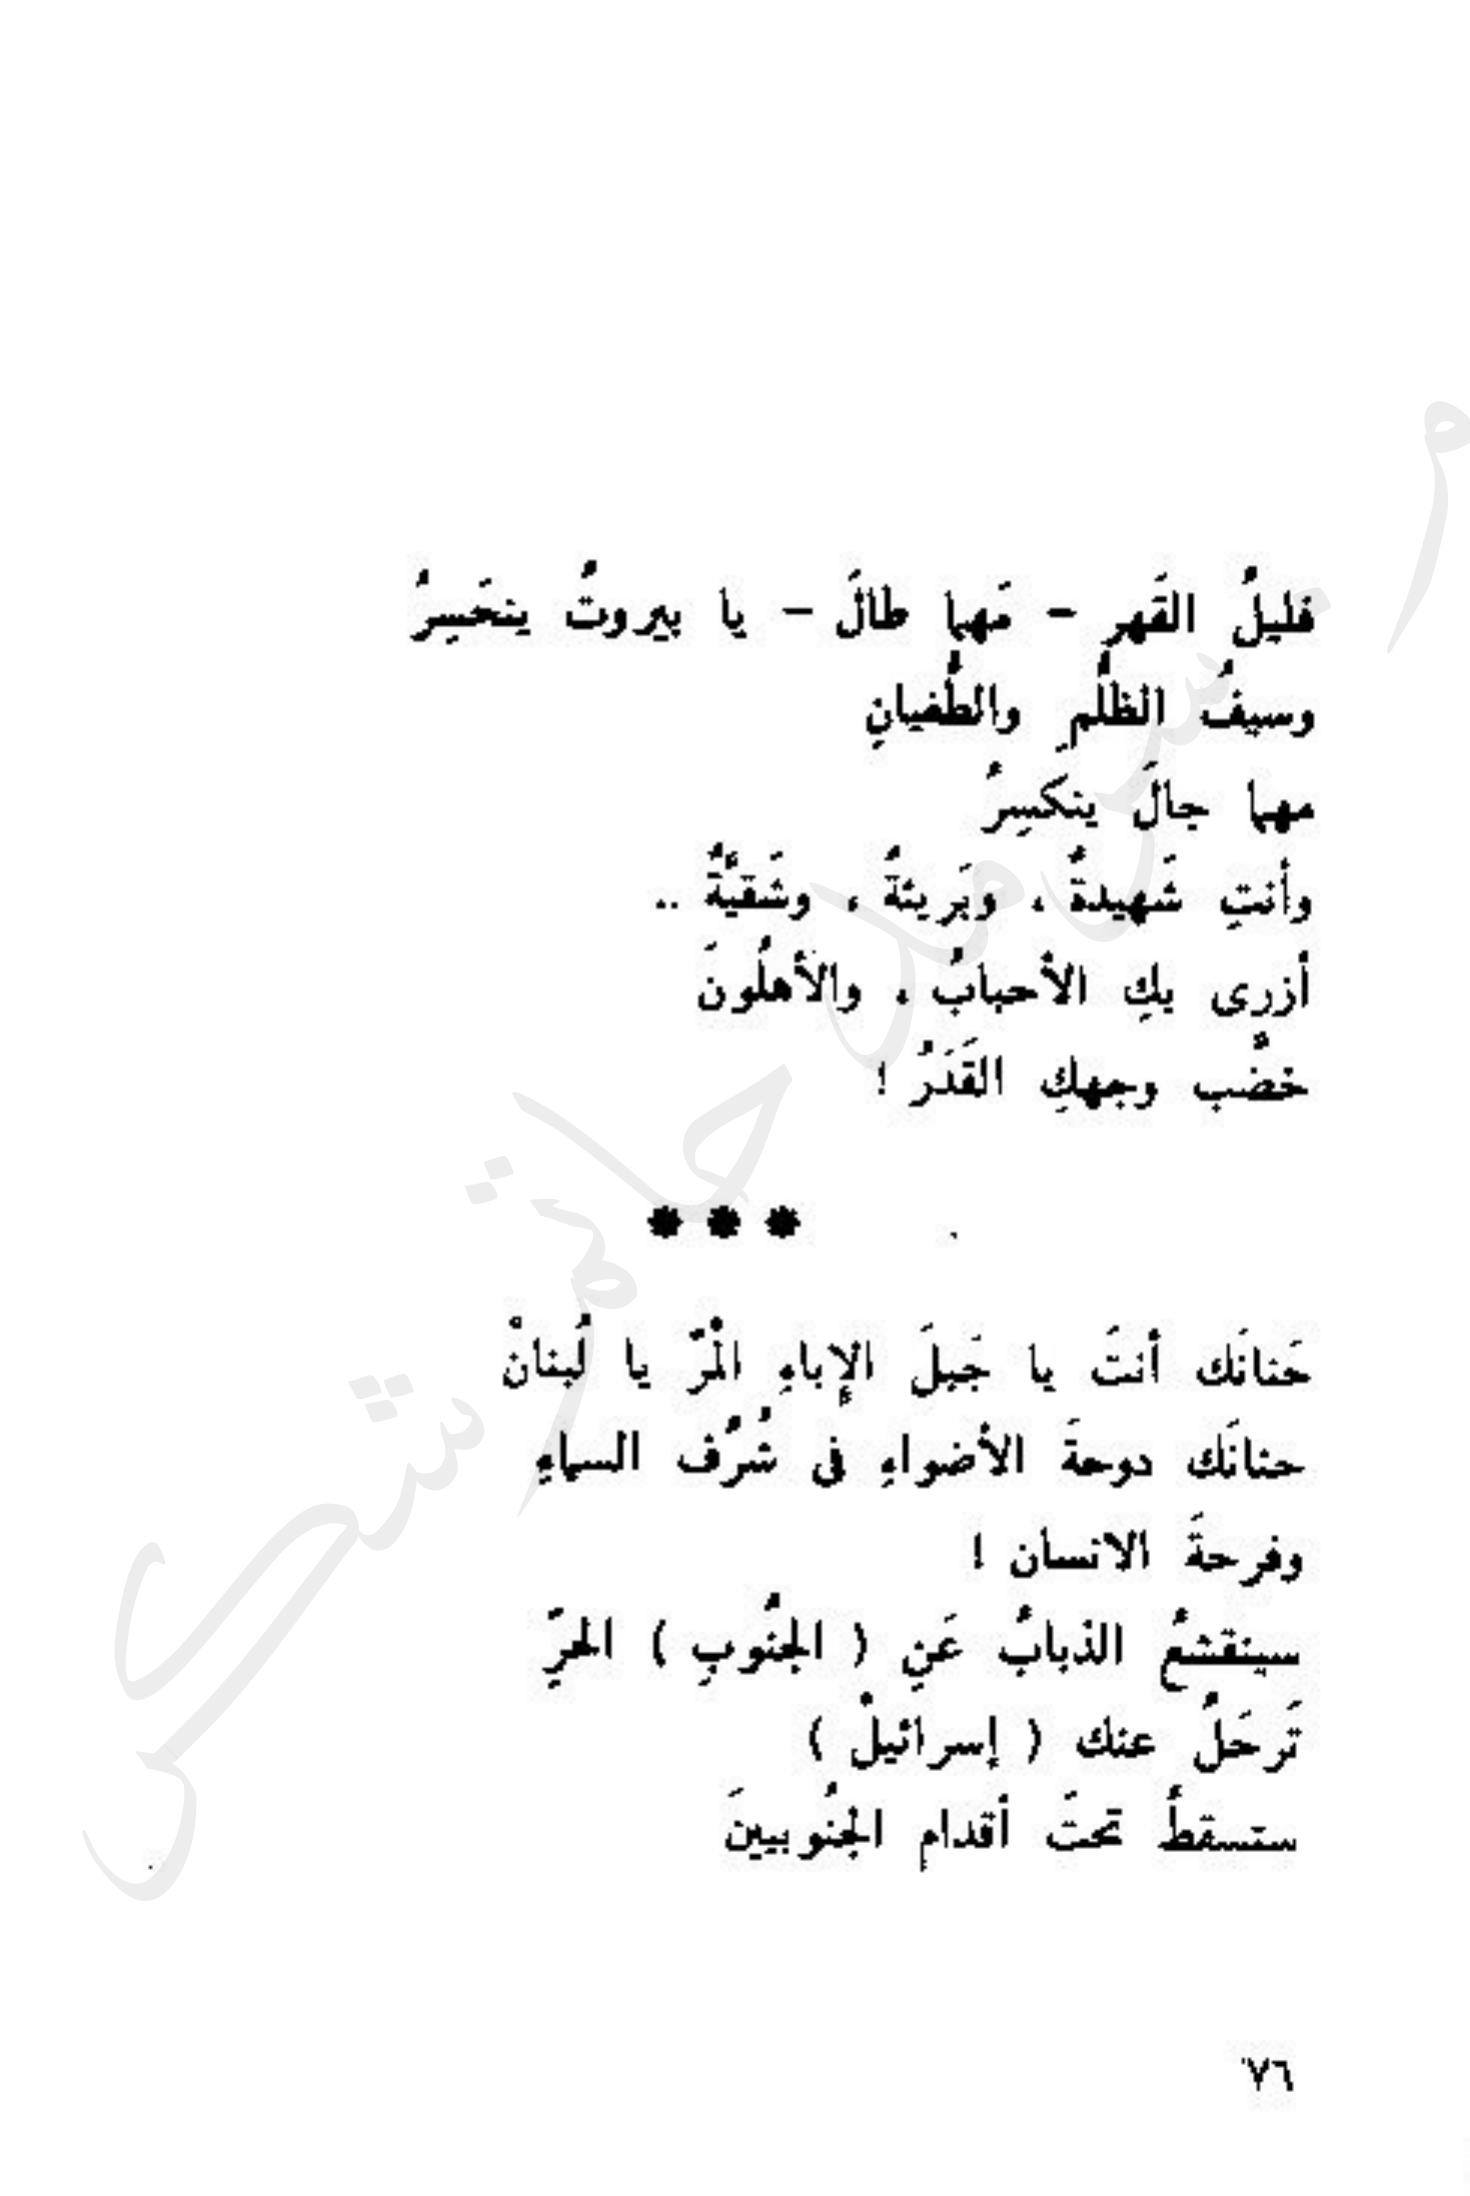 فليلُ القَهرِ - مَهما طالَ - يا بيروتُ ينحَسِرُ
وسيفُ الظلمِ والطُغيانِ
مهما جالَ ينكَسِرُ
وأنتِ شَهيدةٌ ، وبَريئةٌ ، وشَقيَّةٌ ..
أزرى بكِ الأحبابُ ، والأهلُونَ
خضَّب وجهكِ القَدَرُ !
***
حَنانَك أنتَ يا جَبلَ الإِباءِ المُرِّ يا لُبنانْ
حنانَك دوحةَ الأضواءِ فى شُرُف السماءِ
وفرحةَ الانسان !
سينقشعُ الذبابُ عَنِ ( الجنُوبِ ) الحرِّ
تَرحَلُ عنك ( إسرائيلْ )
ستسقطُ تحتَ أقدامِ الجنُوبيينَ
٧٦